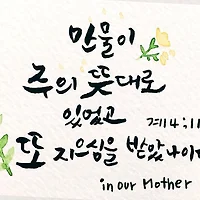 만물이
주의 뜻대로
있었고
계 4:11
또 지으심을 받았나이다
in our Mother